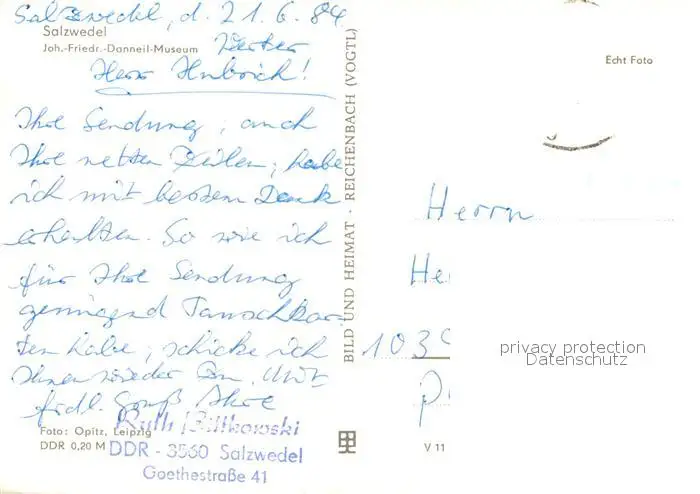 Salzwedel, d. 21.6.84
Salzwedel
Joh.-Friedr.-Danneil-Museum
Werter
Herr Hubrich!
Ihre Sendung, auch
Ihre netten Zeilen, habe
ich mit bestem Dank
erhalten. So wie ich
für Ihre Sendung
genügend Tauschkar-
ten habe, schicke ich
Ihnen wieder zu. Mit
frdl. Gruß Ihre
Foto: Opitz, Leipzig
DDR 0,20 M
Ruth
DDR - 3560 Salzwedel
Goethestraße 41
BILD UND HEIMAT · REICHENBACH (VOGTL)
V 11
Echt Foto
Herrn
He
103
privacy protection
Datenschutz